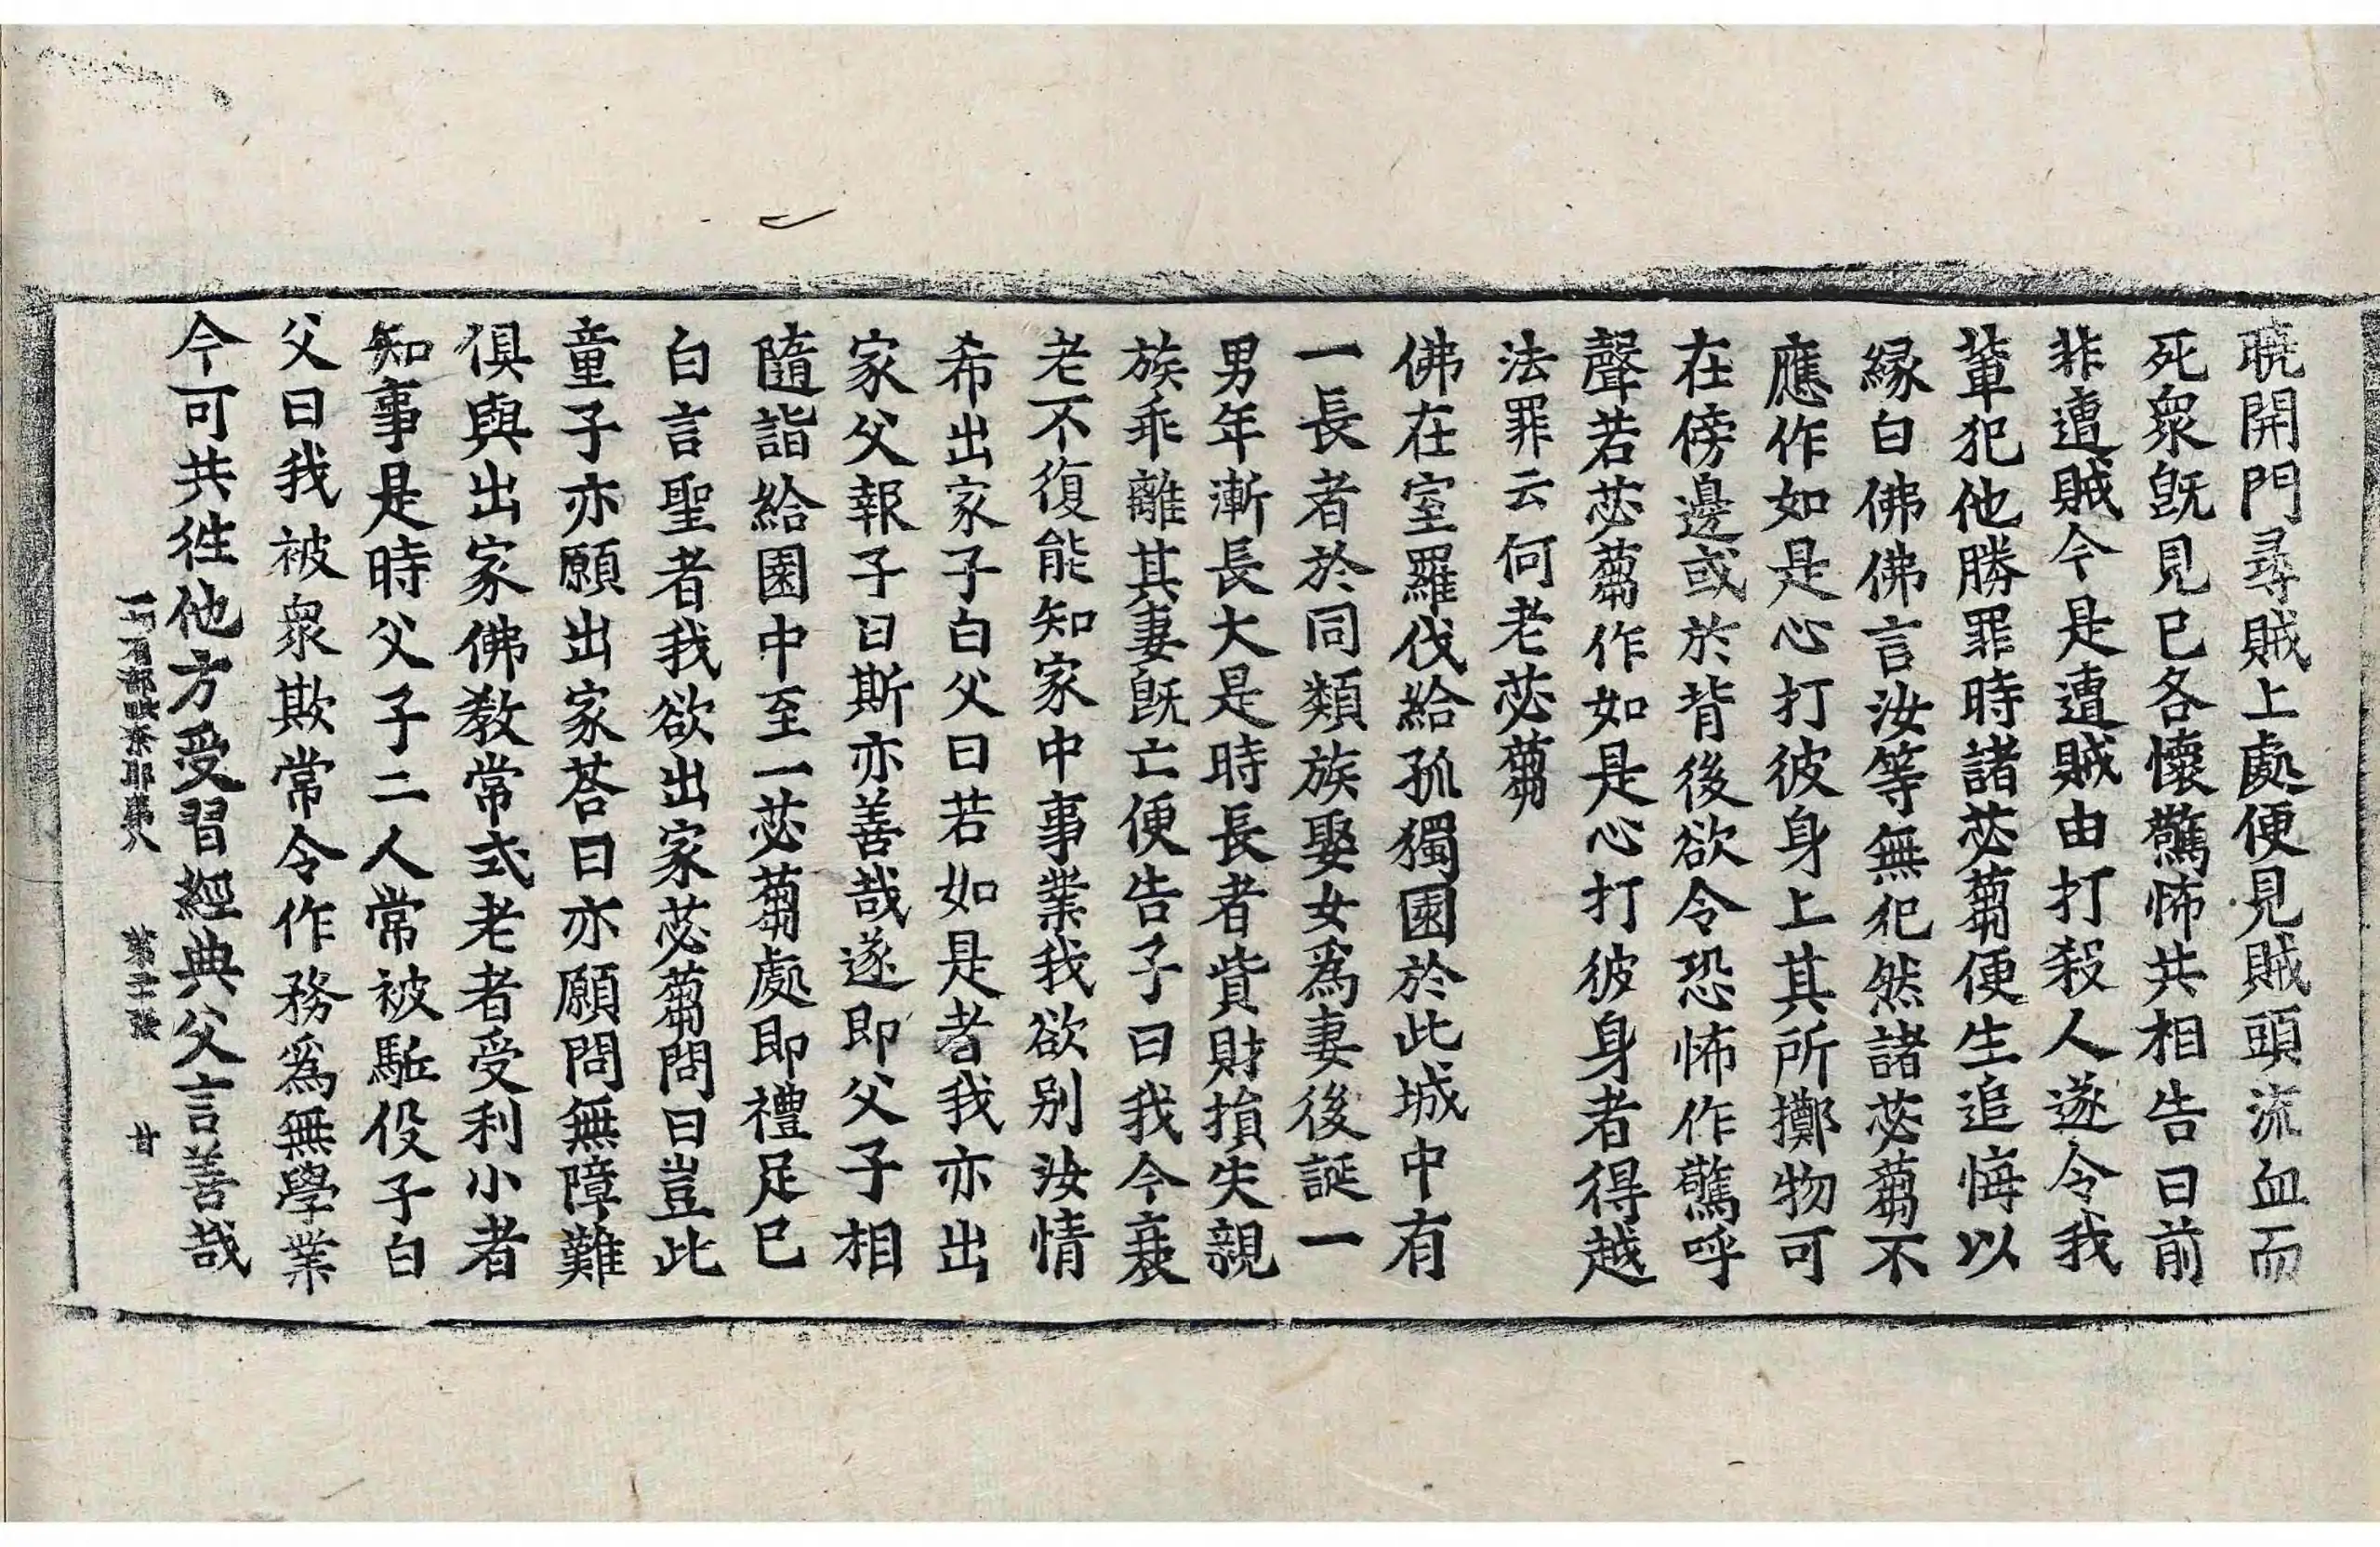 曉開門尋賊上處便見賊頭流血而
死衆旣見已各懷驚怖共相告曰前
非遭賊今是遭賊由打殺人遂令我
輩犯他勝罪時諸苾蒭便生追悔以
緣白佛佛言汝等無犯然諸苾蒭不
應作如是心打彼身上其所擲物可
在傍邊或於背後欲令恐怖作驚呼
聲若苾蒭作如是心打彼身者得越
法罪云何老苾蒭
佛在室羅伐給孤獨園於此城中有
一長者於同類族娶女爲妻後誕一
男年漸長大是時長者貲財損失親
族乖離其妻旣亡便告子曰我今衰
老不復能知家中事業我欲別汝情
希出家子白父曰若如是者我亦出
家父報子曰斯亦善哉遂即父子相
隨詣給園中至一苾蒭處即禮足已
白言聖者我欲出家苾蒭問曰豈此
童子亦願出家荅曰亦願問無障難
俱與出家佛教常式老者受利小者
知事是時父子二人常被駈伇子白
父曰我被衆欺常令作務爲無學業
今可共徃他方受習經典父言善哉
一切有部毗奈耶第八 第二張 甘